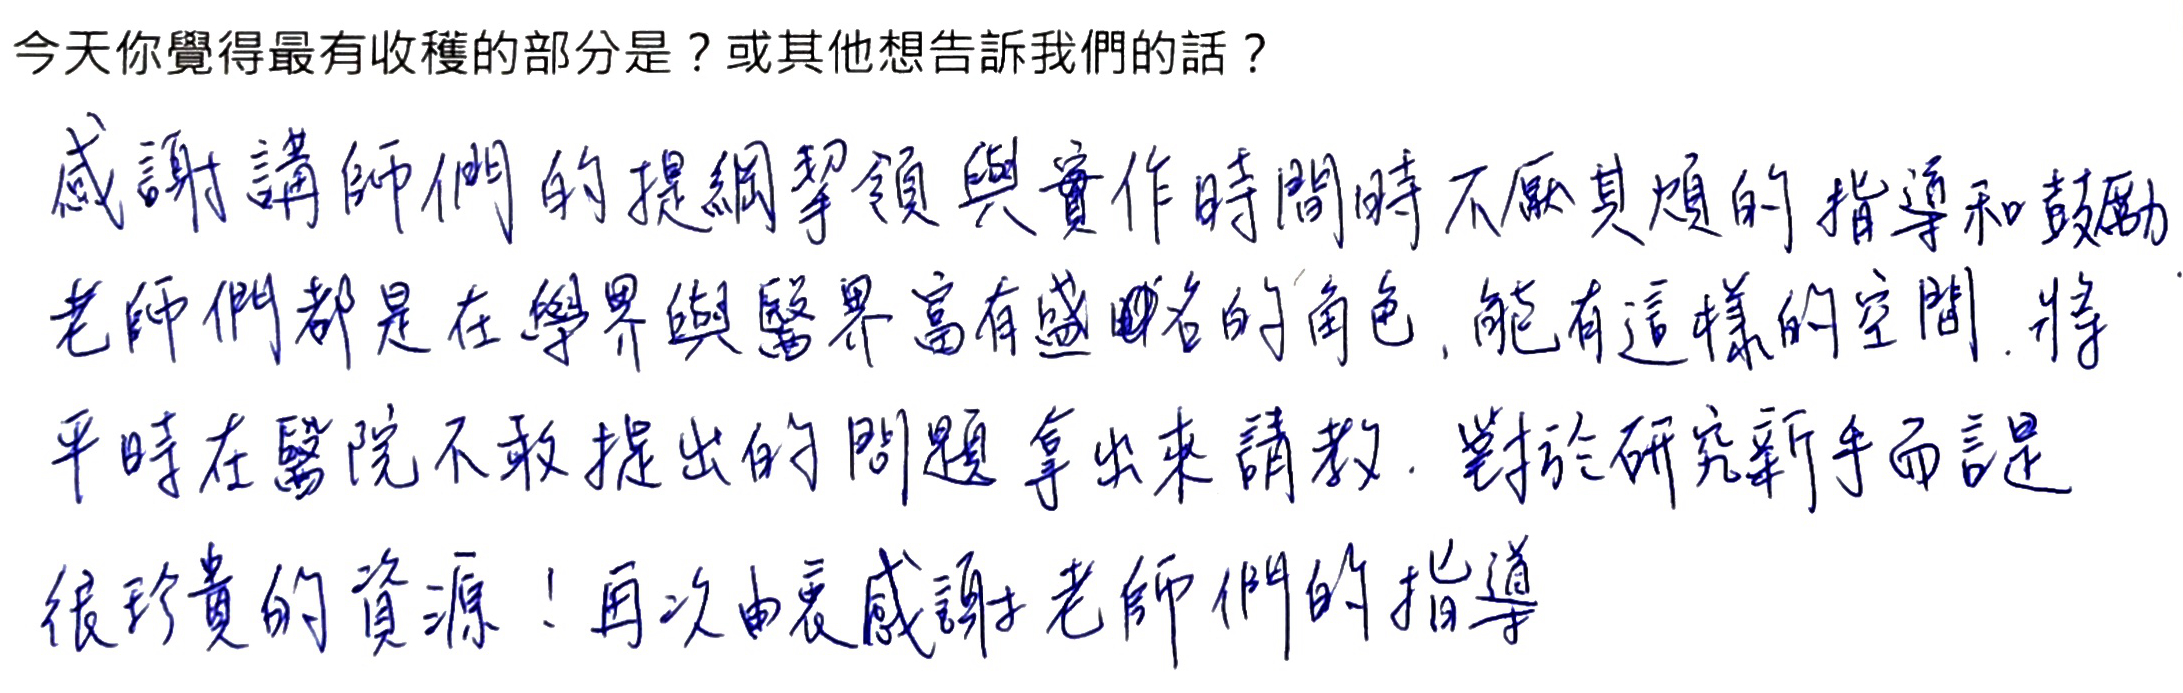 今天你覺得最有收穫的部分是？或其他想告訴我們的話？
感謝講師們的提綱挈領與實作時間時不厭其煩的指導和鼓勵.
老師們都是在學界與醫界富有盛名的角色，能有這樣的空間，將
平時在醫院不敢提出的問題拿出來請教，對於研究新手而言是
很珍貴的資源！再次由衷感謝老師們的指導